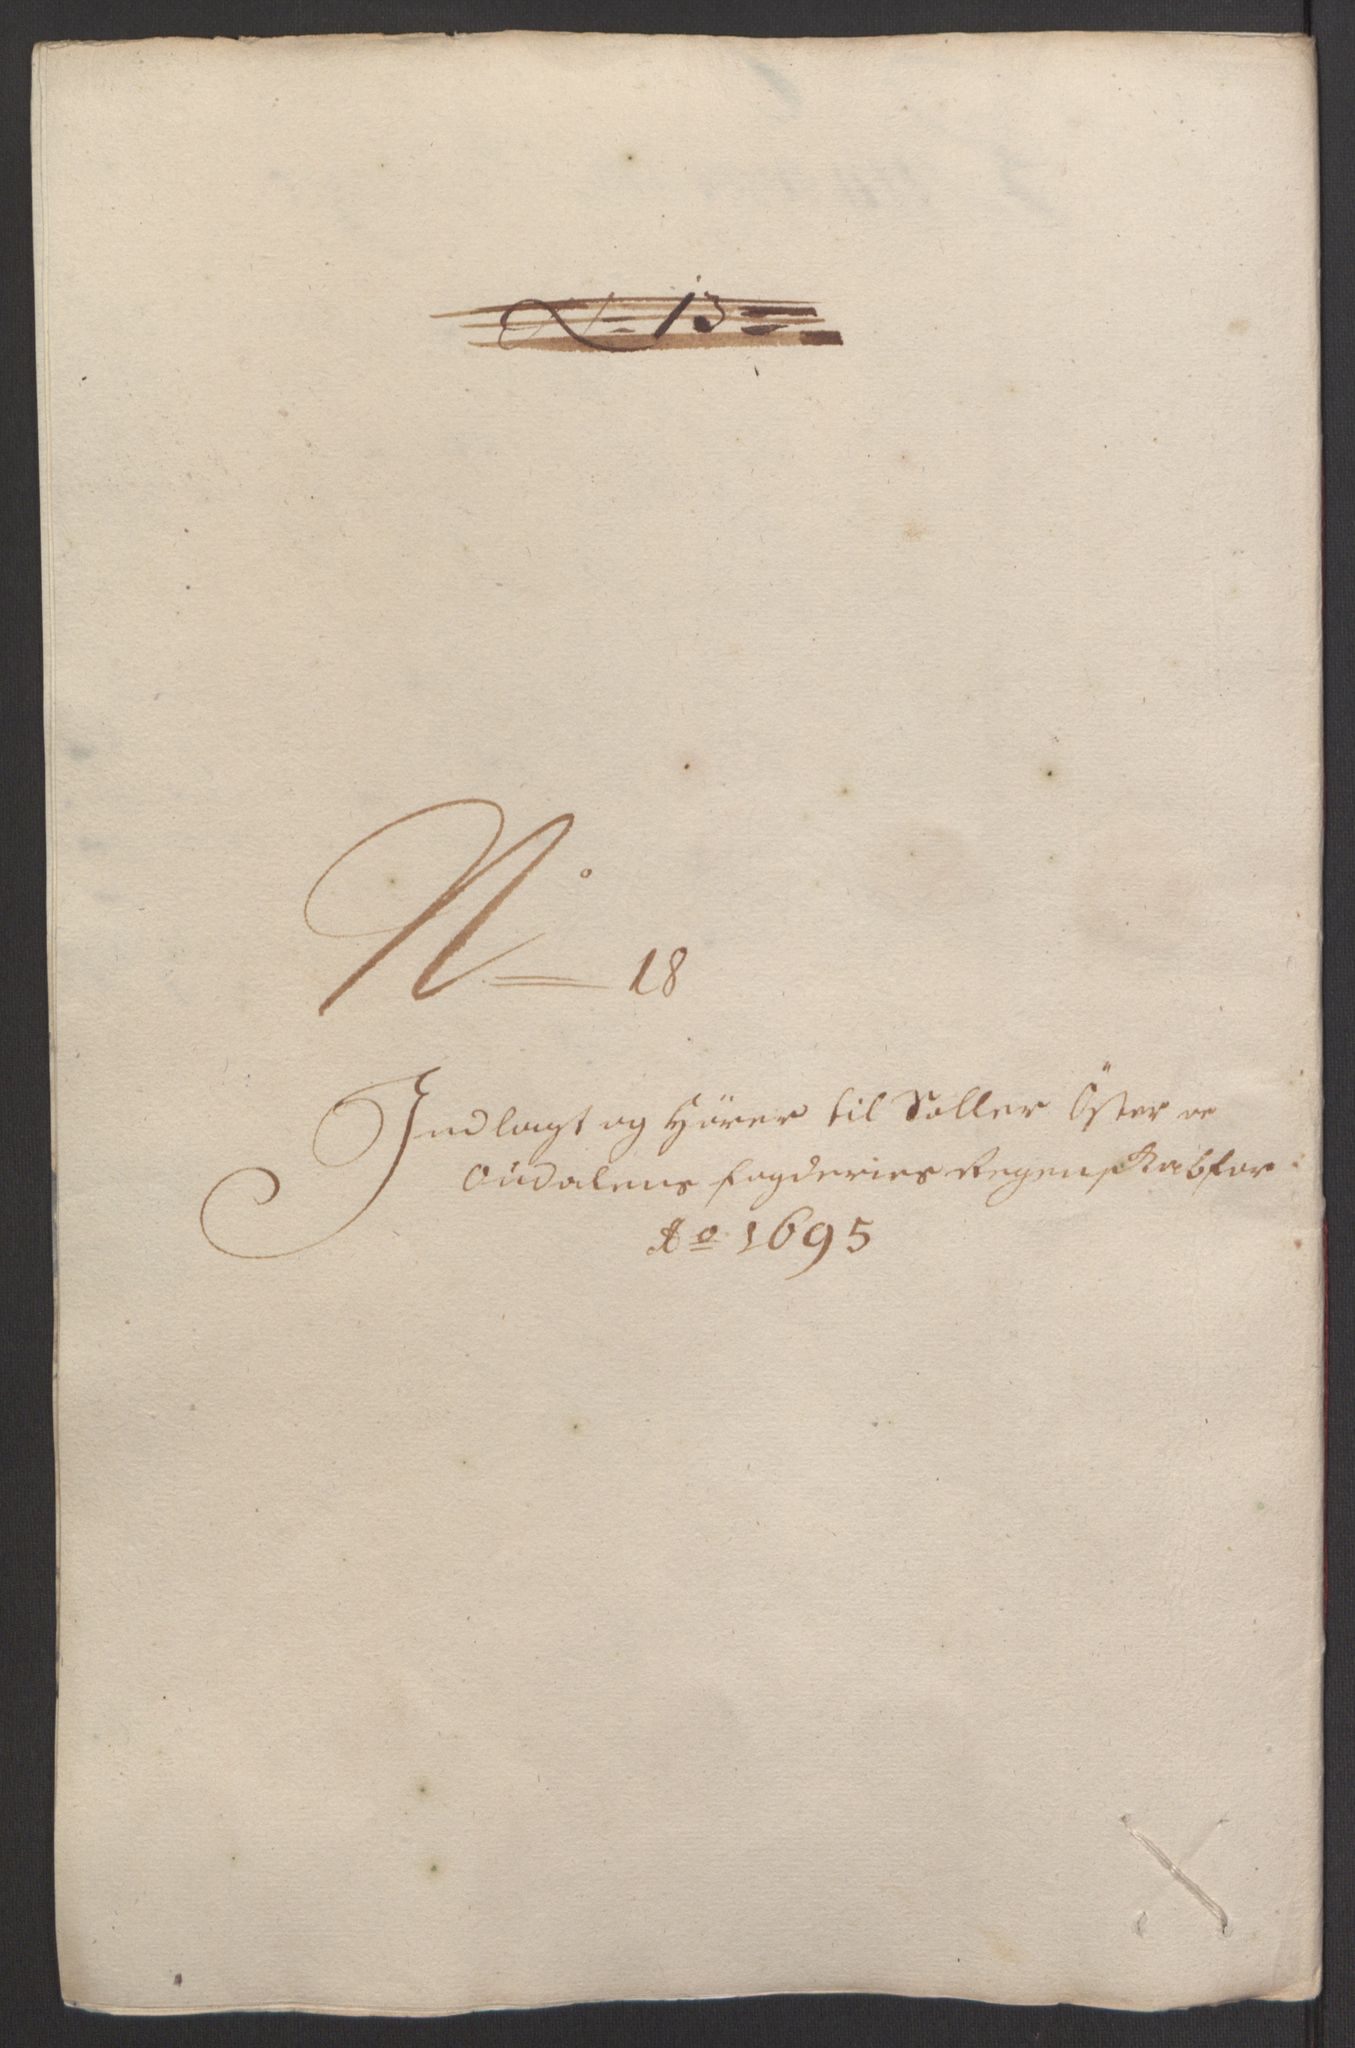 N 13
No 18
Indlagt og Hörer til Soller Öster oc
Oudalens fogderies Regenskab for
Ao 1695